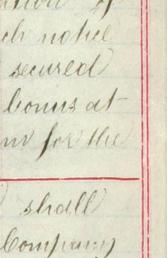 notice
secured
bonus at
for the
shall
Company